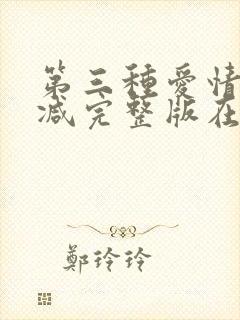 第三種愛情
減完整版在
鄭玲玲